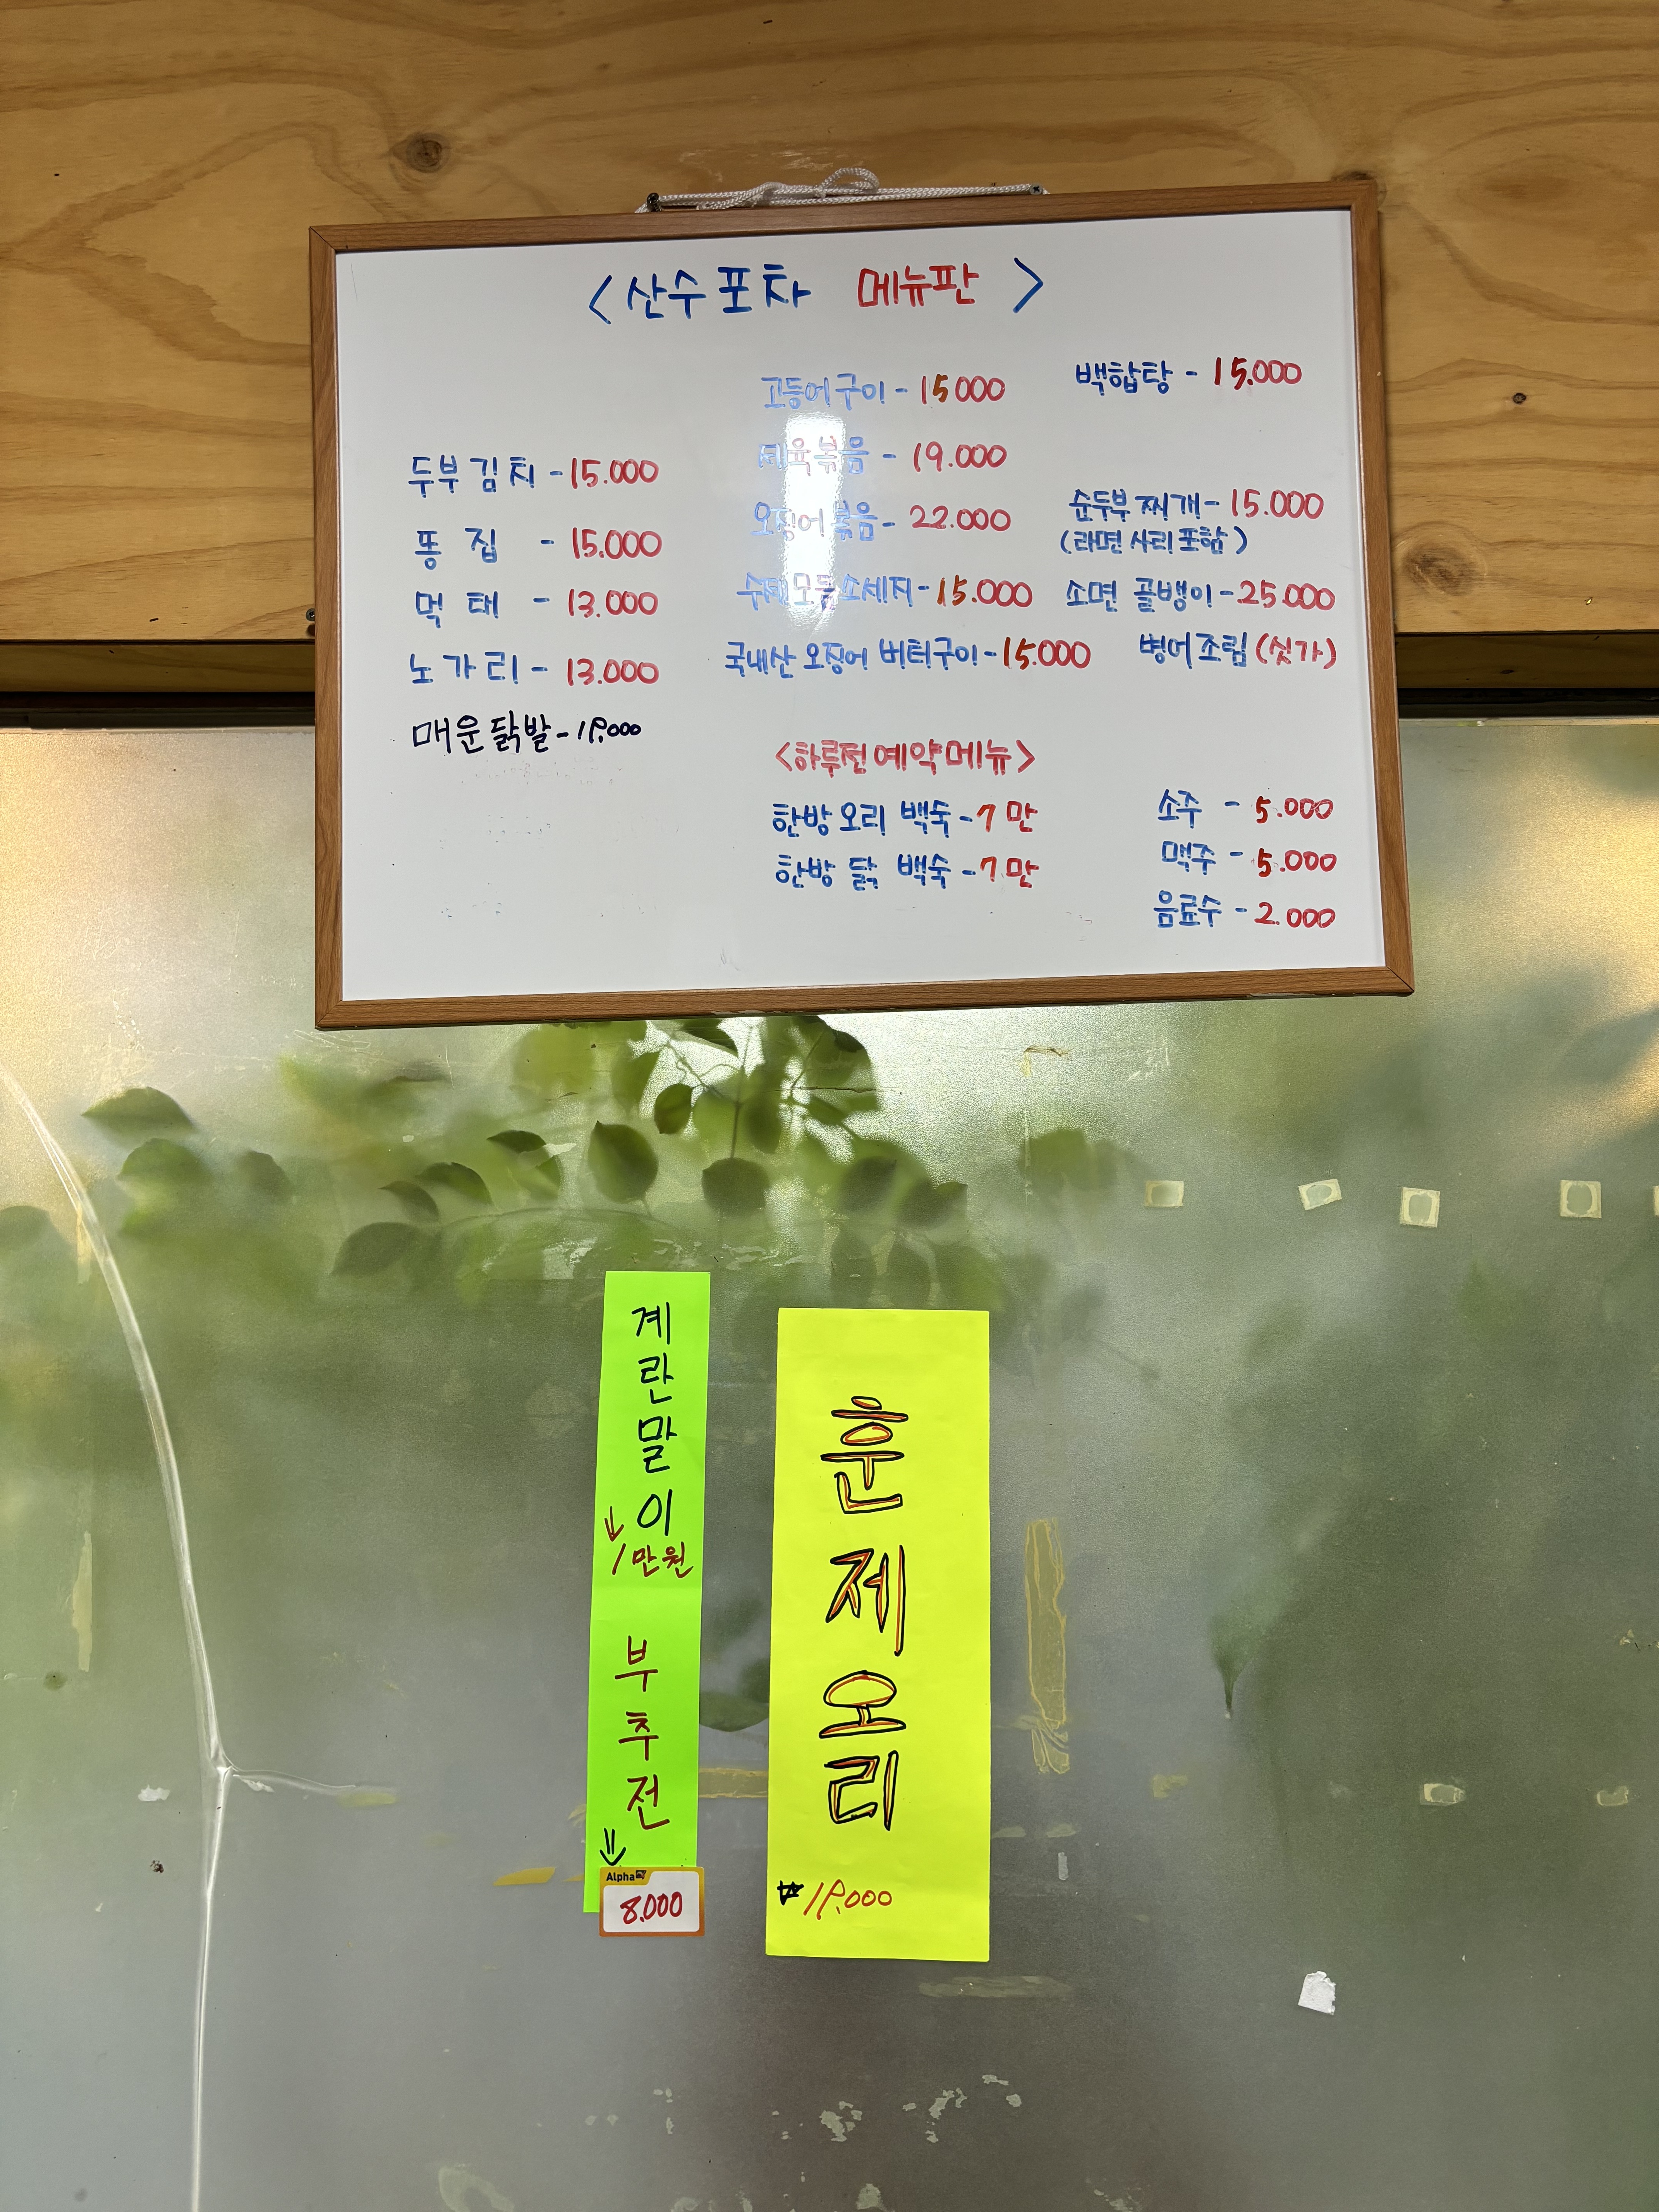 <산수포차 메뉴판>
두부김치 - 15.000
똥집 - 15.000
먹태 - 13.000
노가리 - 13.000
매운닭발 - 19.000
고등어구이 - 15000
제육볶음 - 19.000
오징어볶음 - 22.000
수제모듬소세지 - 15.000
국내산 오징어 버터구이 - 15.000
백합탕 - 15.000
순두부찌개 - 15.000
(라면사리포함)
소면 골뱅이 - 25.000
병어조림 (싯가)
<하루전예약메뉴>
한방오리 백숙 - 7만
한방 닭 백숙 - 7만
소주 - 5.000
맥주 - 5.000
음료수 - 2.000
계란말이
↓
1만원
부추전
↓
Alpha
8.000
훈제오리
₩19.000